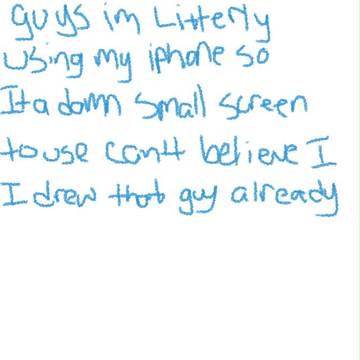 guys im Litterly
using my iphone so
Ita damn small screen
to use cantt believe I
I drew that guy already